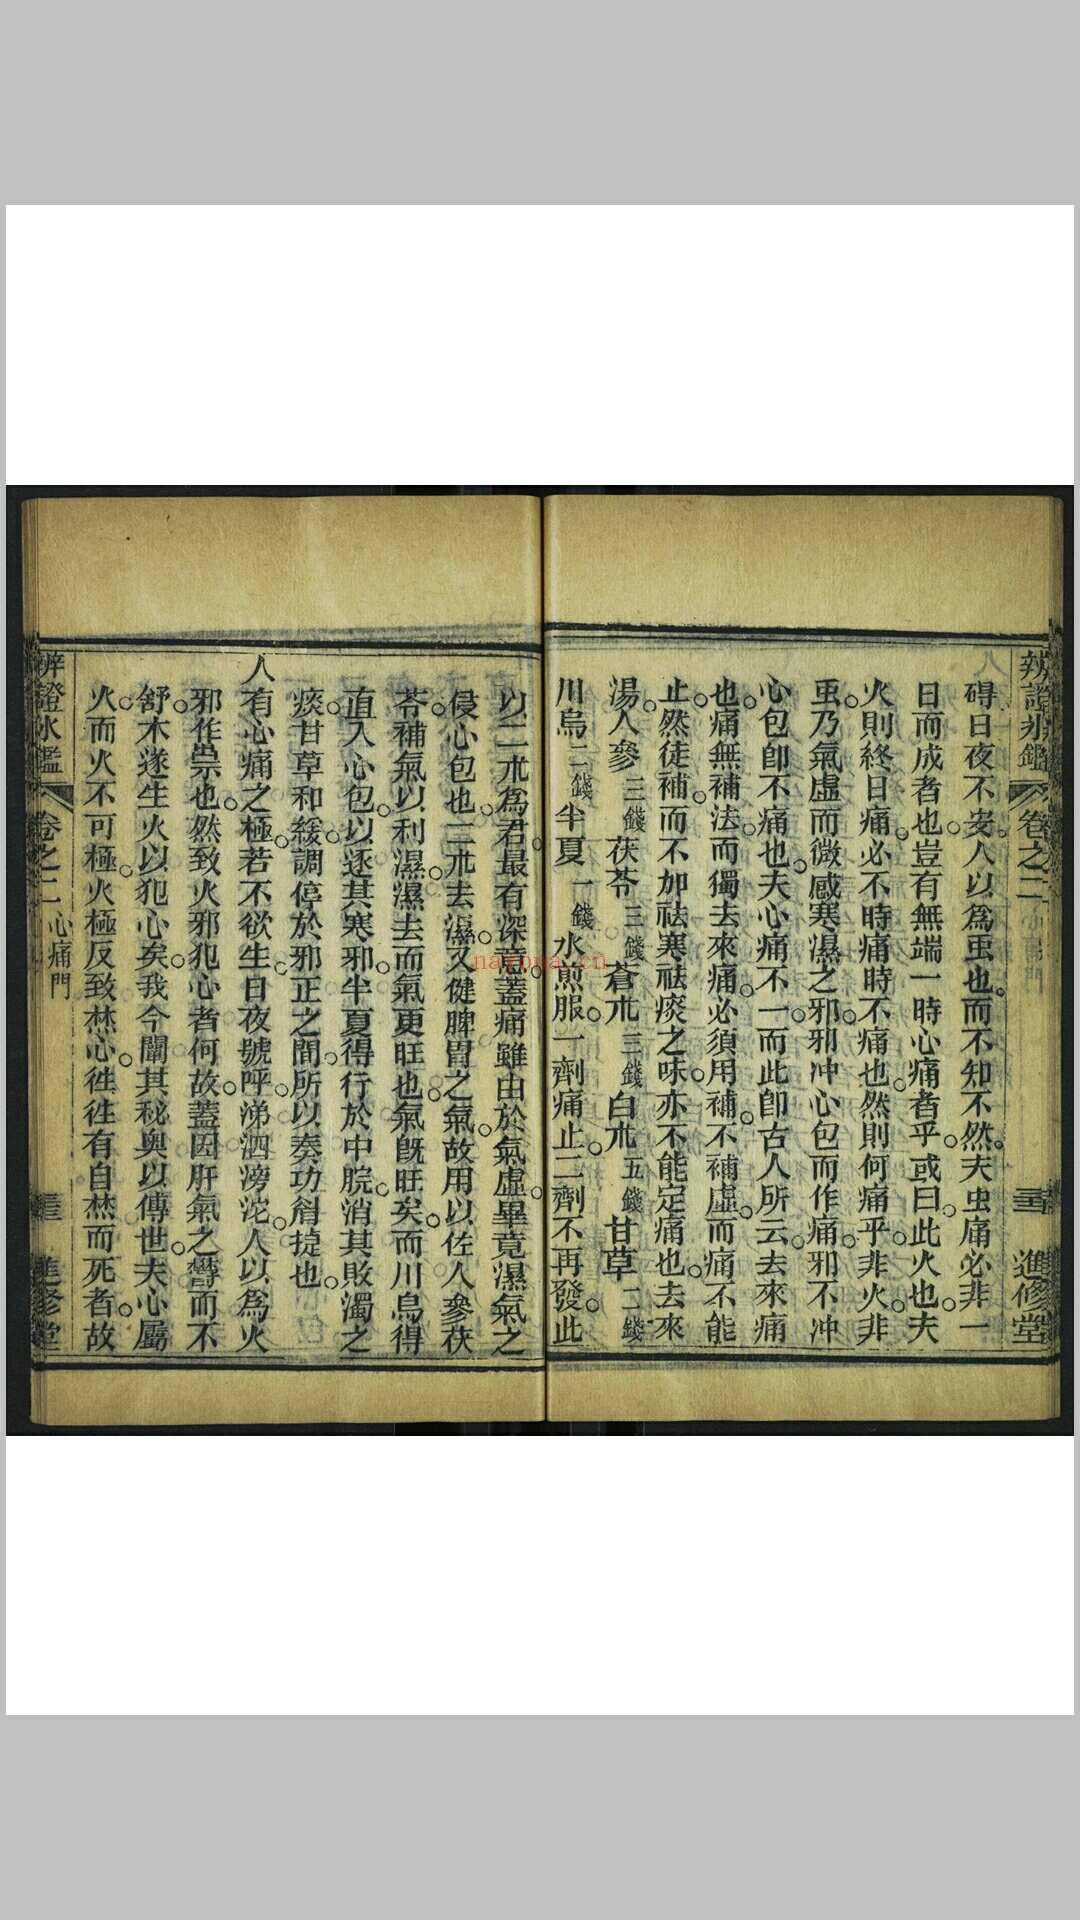 辨證氷鑑 卷之二 進修堂
碍日夜不安人以為虫也而不知不然夫虫痛必非一
日而成者也豈有無端一時心痛者乎或曰此火也夫
火則終日痛必不時痛時不痛也然則何痛乎非火非
虫乃氣虛而微感寒濕之邪邪冲心包而作痛邪不冲
心包卽不痛也夫心痛不一而此卽古人所云去來痛
也痛無補法而獨去來痛必須用補不補虛而痛不能
止然徒補而不加祛寒祛痰之味亦不能定痛也去來
湯人參三錢茯苓三錢蒼朮三錢白朮五錢甘草二錢
川烏二錢半夏一錢水煎服一劑痛止二劑不再發此
以二朮為君最有深意蓋痛雖由於氣虛畢竟濕氣之
侵心包也二朮去濕又健脾胃之氣故用以佐人參茯
苓補氣以利濕濕去而氣更旺也氣旣旺矣而川烏得
直入心包以逐其寒邪半夏得行於中脘消其敗濁之
痰甘草和緩調停於邪正之間所以奏功獨捷也
人有心痛之極若不欲生日夜號呼涕泗滂沱人以為火
邪作祟也然致火邪犯心者何故蓋因肝氣之鬱而不
舒木遂生火以犯心矣我今闡其秘奥以傳世夫心屬
火而火不可極火極反致焚心徃徃有自焚而死者故
辨證氷鑑 卷之二 心痛門 進修堂
nayona.cn